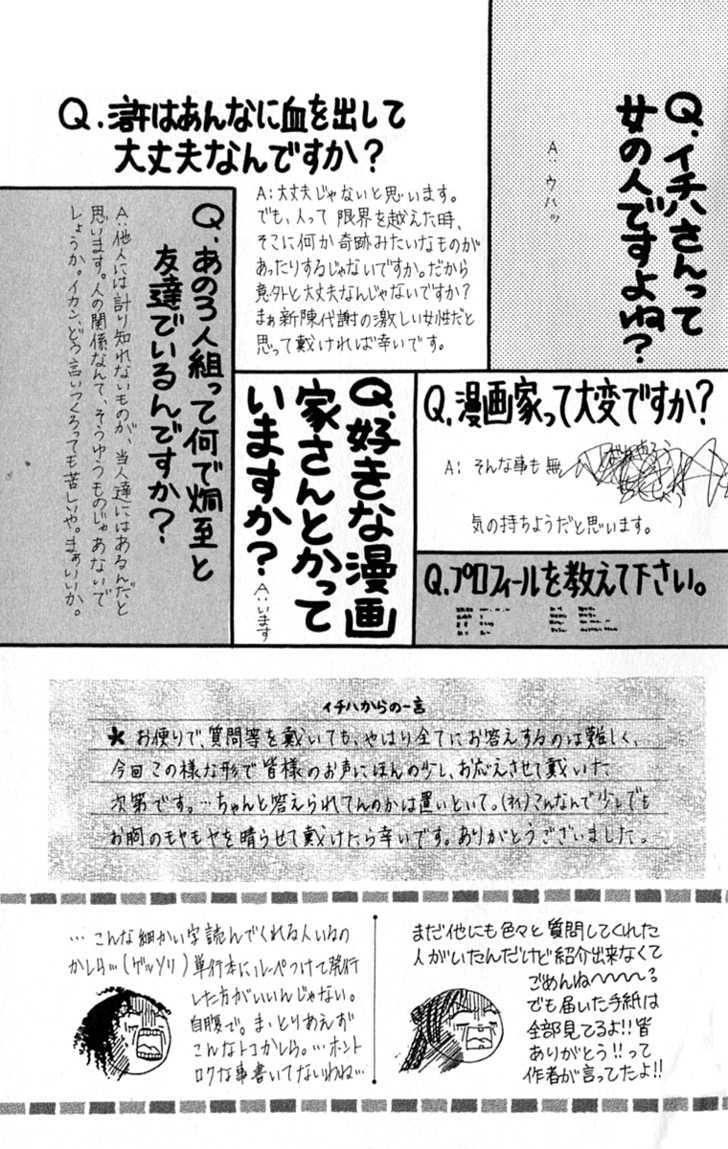 Q.イチハさんって
女の人ですよね?
A:ウハッ
Q.滸はあんなに血を出して
大丈夫なんですか?
A:大丈夫じゃないと思います。
でも、人って限界を越えた時、
そこに何か奇跡みたいなものが
あったりするじゃないですか。だから
意外と大丈夫なんじゃないですか?
まぁ新陳代謝の激しい女性だと
思って戴ければ幸いです。
Q.あの3人組って何で炯至と
友達でいるんですか?
A:他人には計り知れないものが、当人達にはあるんだと
思います。人の関係なんて、そうゆうものじゃあないで
しょうか。イカン、どう言いつくろっても苦しいや。まぁいいか。
Q.好きな漫画
家さんとかって
いますか?
A:います
Q.漫画家って大変ですか?
A:そんな事も無
気の持ちようだと思います。
Q.プロフィールを教えて下さい。
イチハからの一言
★お便りで、質問等を戴いても、やはり全てにお答えするのは難しく、
今回この様な形で皆様のお声にほんの少し、お応えさせて戴いた
次第です。…ちゃんと答えられてんのかは置いといて。(オイ)こんなんで少しでも
お胸のモヤモヤを晴らせて戴けたら幸いです。ありがとうございました。
まだ他にも色々と質問してくれた
人がいたんだけど紹介出来なくて
ごめんね〜〜〜〜?
でも届いた手紙は
全部見てるよ!!皆
ありがとう!!って
作者が言ってたよ!!
…こんな細かい字読んでくれる人いるの
かしら…(ゲッソリ)単行本にルーペつけて発行
した方がいいんじゃない。
自腹で。ま、とりあえず
こんなトコかしら。…ホント
ロクな事書いてないわね…